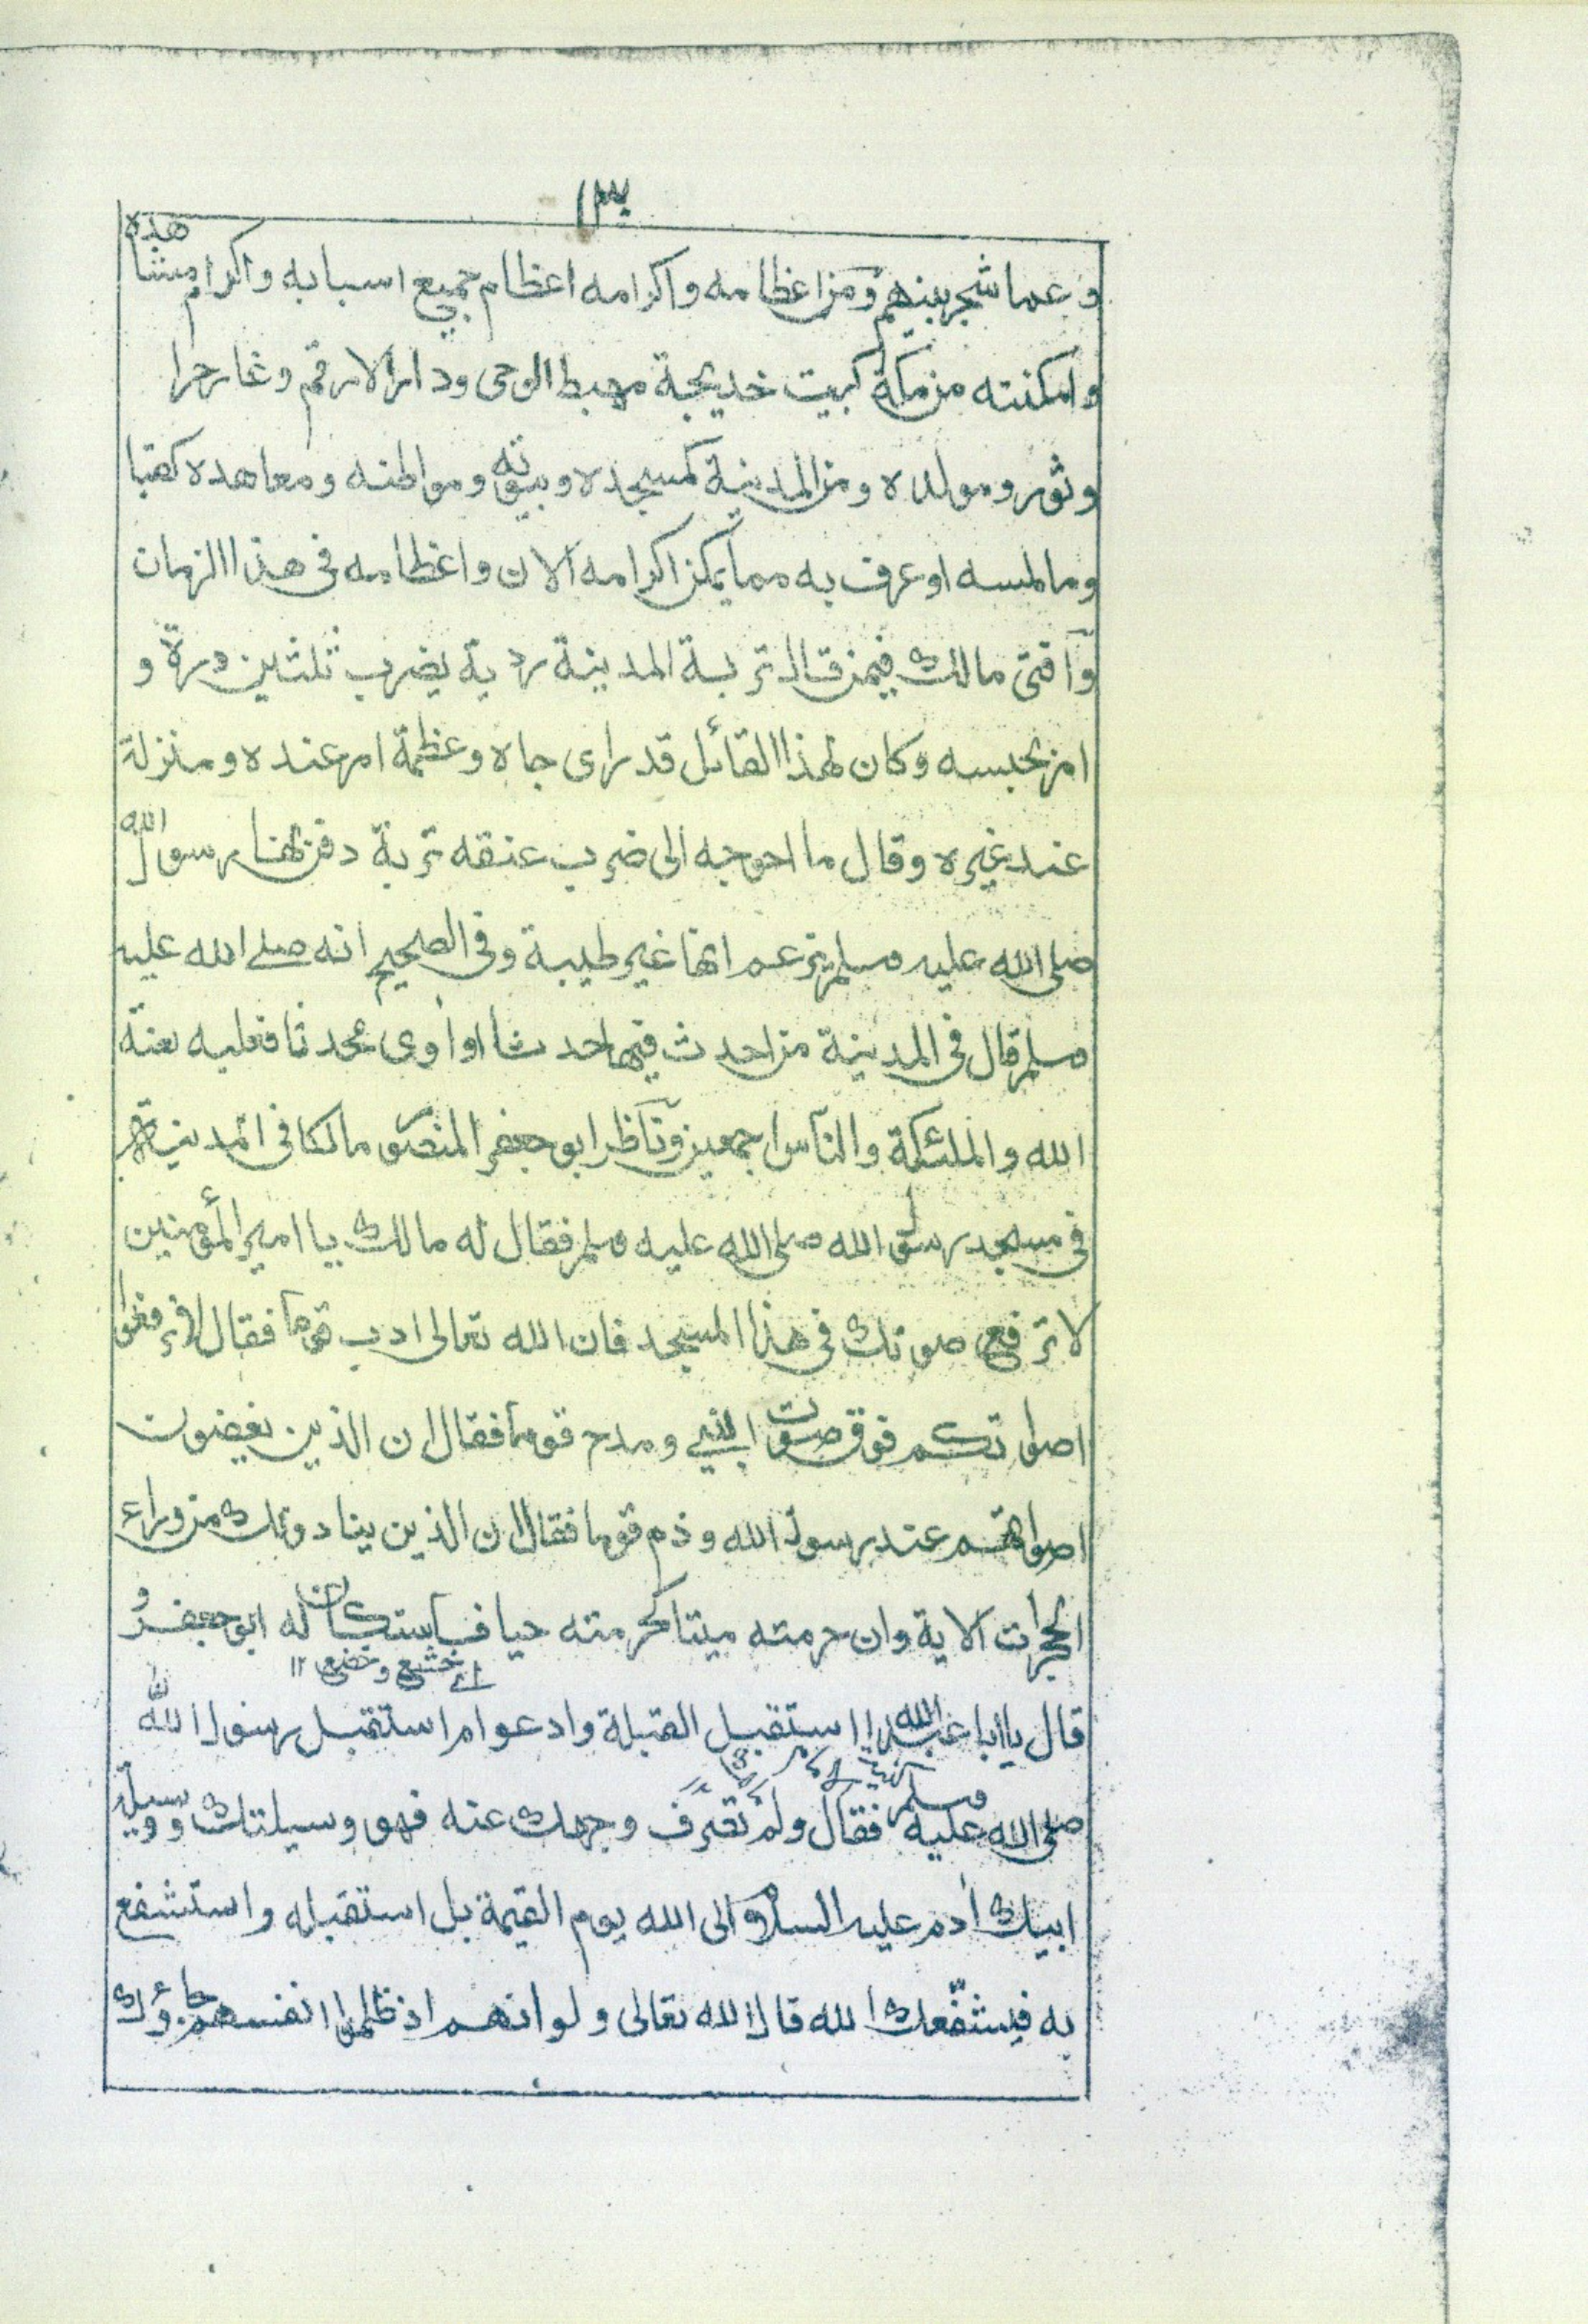 ١٣
وعما شجر بينهم ومن اعظامه واكرامه اعظام جميع اسبابه واكرام مشاهده
وامكنته من مكة كبيت خديجة مهبط الوحى ودار الارقم وغار حرا
وثور ومولده ومن المدينة كمسجده وبيوته ومواطنه ومعاهده كقبا
وما لمسه او عرف به مما يمكن اكرامه الآن واعظامه فى هذا الزمان
وافتى مالك فيمن قال تربة المدينة ردية يضرب ثلثين درة و
امر بحبسه وكان لهذا القائل قدراى جاه وعظمة امر عنده ومنزلة
عند غيره وقال ما احوجه الى ضرب عنقه تربة دفن بها رسول الله
صلى الله عليه وسلم تزعم انها غير طيبة وفى الصحيح انه صلے الله عليه
وسلم قال فى المدينة من احدث فيها حدثا او اوى محدثا فعليه لعنة
الله والملئكة والناس اجمعين وناظر ابو جعفر المنصور مالكا فى المدينة
فى مسجد رسول الله صلى الله عليه وسلم فقال له مالك يا امير المؤمنين
لا ترفع صوتك فى هذا المسجد فان الله تعالى ادب قوما فقال لا ترفعوا
اصواتكم فوق صوت النبي ومدح قوما فقال ان الذين يغضون
اصواتهم عند رسول الله وذم قوما فقال ان الذين ينادونك من وراء
الحجرات الآية وان حرمته ميتا كحرمته حيا فاستكان له ابو جعفر و
اے خشع وخضع ١٢
قال يا ابا عبد الله استقبل القبلة وادعوا ام استقبل رسول الله
صلى الله عليه وسلم فقال ولم تصرف وجهك عنه فهو وسيلتك ووسيلة
ابيك ادم عليه السلام الى الله يوم القيمة بل استقبله واستشفع
به فيشفّعك الله قال الله تعالى ولو انهم اذ ظلموا انفسهم جاؤك